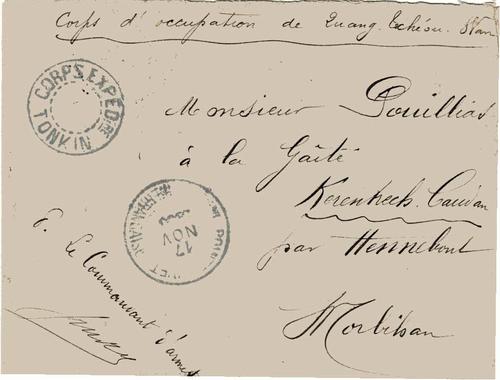 Corps d'occupation de Quang. Tchéou. Wan
CORPS EXPED.RE
TONKIN
Monsieur Douillias
à la Gaîté
17
NOV
Caudan
par Hennebont
P. Le Commandant d'armes
Morbihan